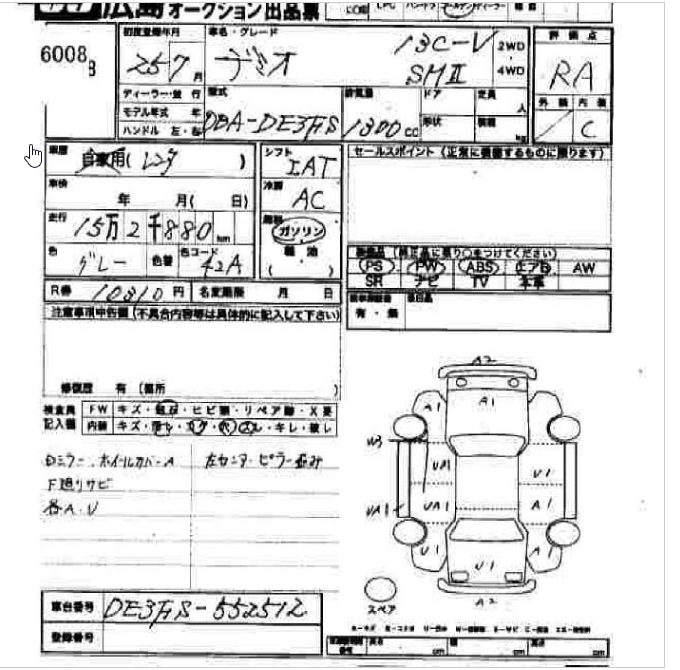 広島 オークション 出品票
6008
初度登録年月 車名・グレード 評価点
25 7 月 デミオ 13C-V 2WD
SMII 4WD RA
ディーラー・並行 型式 排気量 ドア 定員 人 外装 内装
モデル年式 年 DBA-DE3FS 1300 cc 形状 積載 kg C
ハンドル 左・右
車歴 自家用( レンタ ) シフト IAT セールスポイント (正常に機能するものに限ります)
車検 年 月( 日) 冷房 AC
走行 15万2千880 km 燃料 ガソリン
軽油
色 グレー 色替 色コード 42A ( )
装備品 (純正品に限り○をつけてください)
PS PW ABS エアB AW
SR ナビ TV 本革
R券 10810 円 名変期限 月 日
有・無
注意事項申告欄 (不具合内容等は具体的に記入して下さい)
修復歴 有 (箇所 )
検査員 FW キズ・飛石・ヒビ割・リペア跡・X要
記入欄 内装 キズ・汚れ・コゲ・穴・スレ・キレ・破れ
ミラー、ホイールカバーA 左センターピラー歪み
下廻りサビ
各A・U
A2
A1 A1
W3
UA1 U1
UA1 UA1 A1
U1 U1 A1
A2
スペア
車台番号 DE3FS-552512
登録番号